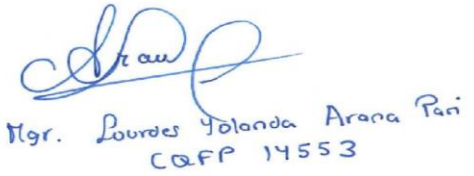 Arau
Mgr. Lourdes Yolanda Arana Pari
CQFP 14553